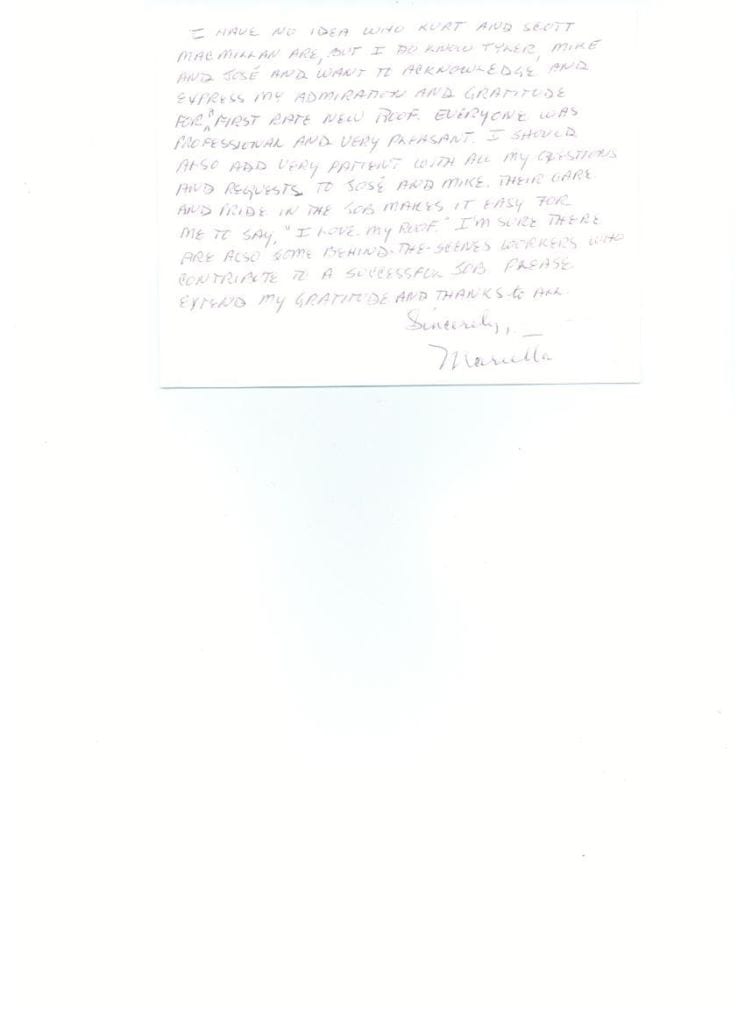 I HAVE NO IDEA WHO KURT AND SCOTT
MACMILLAN ARE, BUT I DO KNOW TYLER, MIKE
AND JOSÉ AND WANT TO ACKNOWLEDGE AND
EXPRESS MY ADMIRATION AND GRATITUDE
FOR a FIRST RATE NEW ROOF. EVERYONE WAS
PROFESSIONAL AND VERY PLEASANT. I SHOULD
ALSO ADD VERY PATIENT WITH ALL MY QUESTIONS
AND REQUESTS TO JOSÉ AND MIKE. THEIR CARE
AND PRIDE IN THE JOB MAKES IT EASY FOR
ME TO SAY, "I LOVE MY ROOF." I'M SURE THERE
ARE ALSO SOME BEHIND-THE-SCENES WORKERS WHO
CONTRIBUTE TO A SUCCESSFUL JOB. PLEASE
EXTEND MY GRATITUDE AND THANKS to ALL.
Sincerely,
Marietta